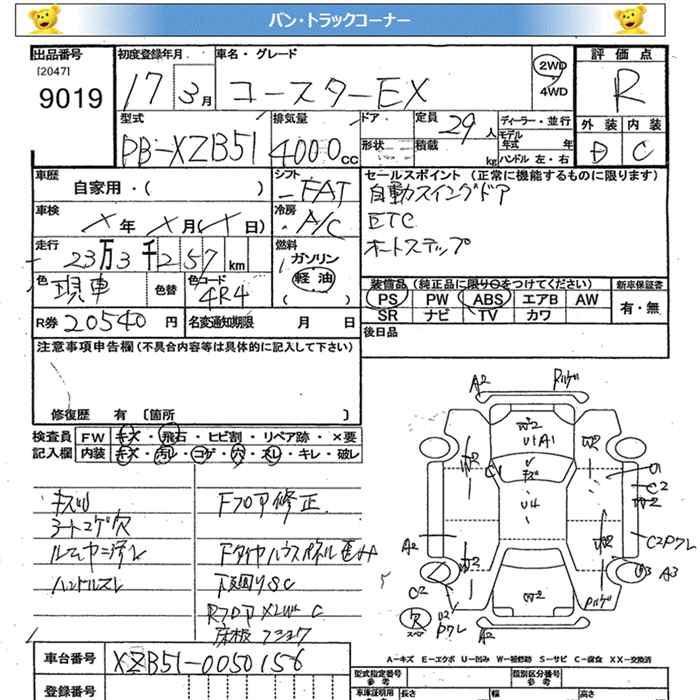 バン・トラックコーナー
出品番号 初度登録年月 車名・グレード 評価点
[2047]
9019 17 3月 コースターEX 2WD 4WD R
型式 排気量 ドア 定員 29人 ディーラー・並行 外装 内装
PB-XZB51 4000cc 形状 積載 kg モデル年式 年 ハンドル 左・右 D C
車歴 シフト セールスポイント (正常に機能するものに限ります)
自家用・( ) FAT 自動スイングドア
車検 X年X月(X日) 冷房 A/C ETC
オートステップ
走行 23万3千257km 燃料 ガソリン 軽油 ( )
色 現車 色替 色コード 4R4
装備品 (純正品に限り○をつけてください) 新車保証書
PS PW ABS エアB AW 有・無
SR ナビ TV カワ
R券 20540円 名変通知期限 月 日 後日品
注意事項申告欄(不具合内容等は具体的に記入して下さい)
修復歴 有 〔箇所 〕
検査員 FW キズ・飛石・ヒビ割・リペア跡・×要
記入欄 内装 キズ・汚レ・コゲ・穴・スレ・キレ・破レ
キズU Fフロア修正
シートコゲ穴
ハンドルスレ 下廻りSC
A2 W2 U1 A1 U キズ U4 C1 W2 W2 U1 C2 W2
A2 C2 W2 W2 W2 C2 A3
A2
A-キズ E-エクボ U-凹み W-補修跡 S-サビ C-腐食 XX-交換済
車台番号 XZB51-0050156
登録番号
型式指定番号 参考 類別区分番号 参考
車庫証明用 長さ 幅 高さ